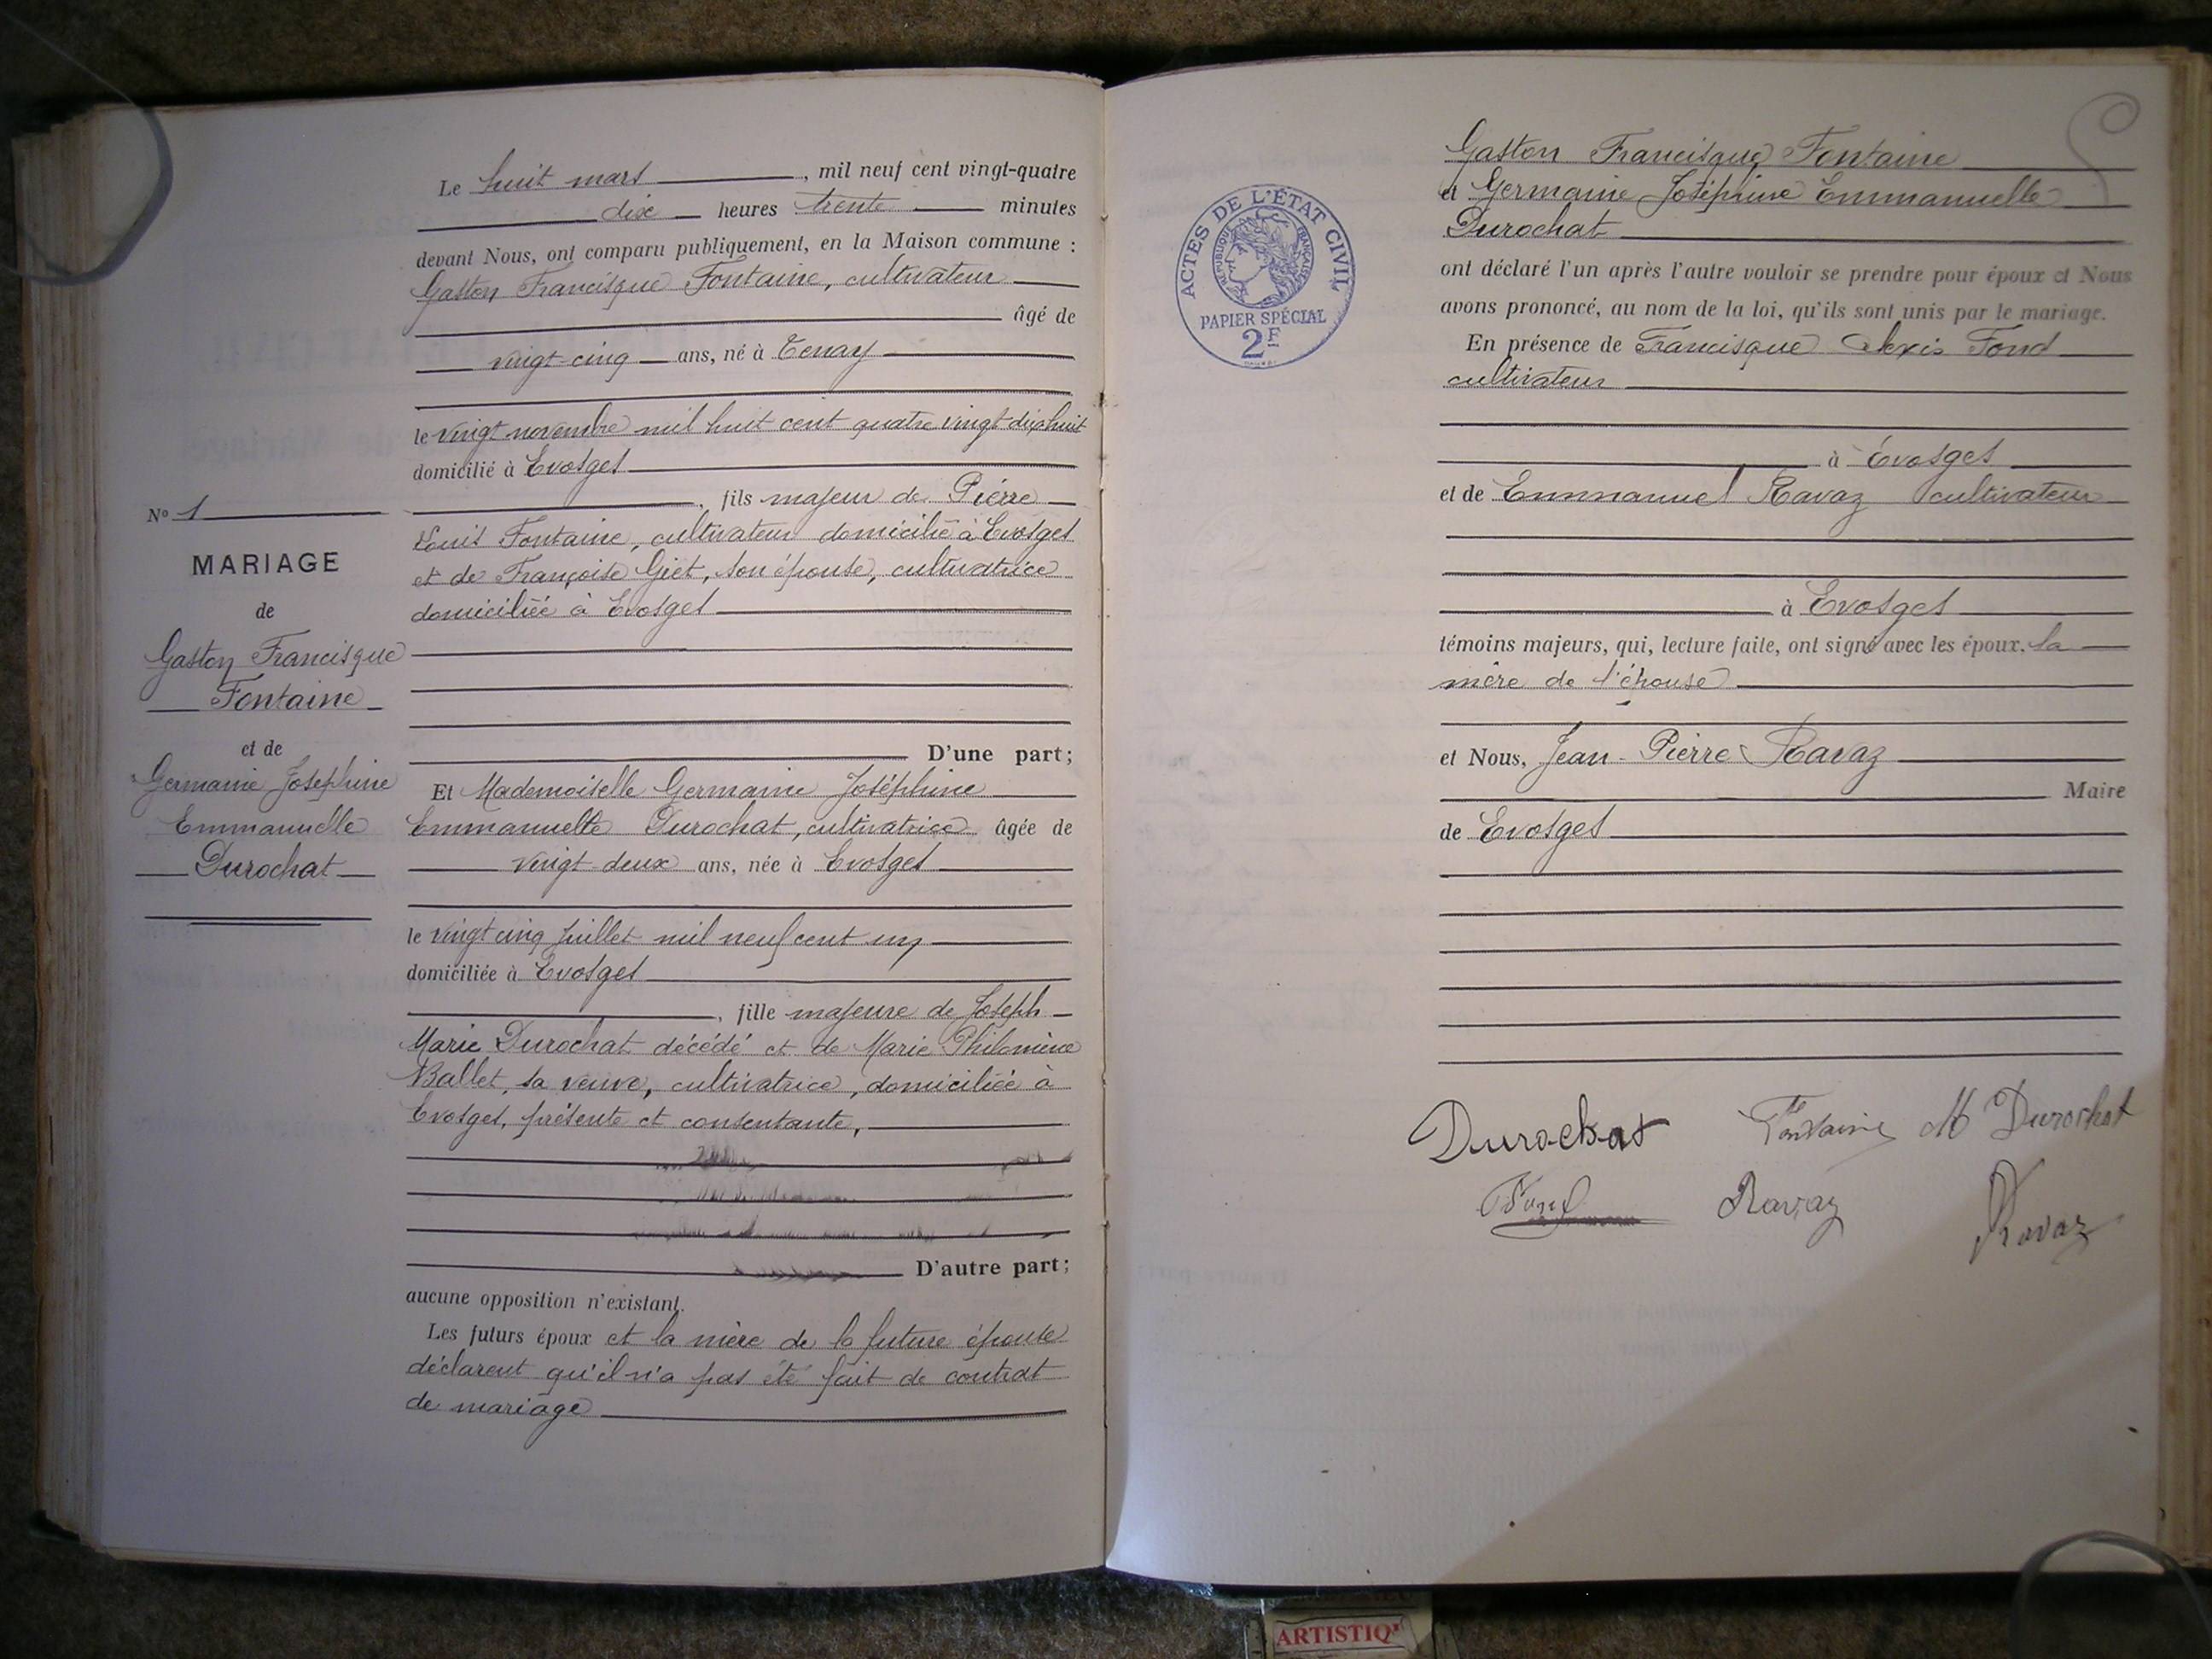 N° 1
MARIAGE
de
Gaston Francisque
Fontaine
et de
Germanie Joséphine
Emmanuelle
Durochat
Le huit mars, mil neuf cent vingt-quatre
dix heures trente minutes
devant Nous, ont comparu publiquement, en la Maison commune :
Gaston Francisque Fontaine, cultivateur
âgé de
vingt-cinq ans, né à Tenay
le vingt novembre mil huit cent quatre vingt dix huit
domicilié à Evosges
, fils majeur de Pierre
Louis Fontaine, cultivateur domicilié à Evosges
et de Françoise Giet, son épouse, cultivatrice
domiciliée à Evosges
D'une part;
Et Mademoiselle Germanie Joséphine
Emmanuelle Durochat, cultivatrice âgée de
vingt-deux ans, née à Evosges
le vingt cinq juillet mil neuf cent un
domiciliée à Evosges
, fille majeure de Joseph
Marie Durochat décédé et de Marie Philomène
Ballet, sa veuve, cultivatrice, domiciliée à
Evosges, présente et consentante,
D'autre part;
aucune opposition n'existant.
Les futurs époux et la mère de la future épouse
déclarent qu'il n'a pas été fait de contrat
de mariage
ACTES DE L'ÉTAT CIVIL
RÉPUBLIQUE FRANÇAISE
PAPIER SPÉCIAL
2F
Gaston Francisque Fontaine
et Germanie Joséphine Emmanuelle
Durochat
ont déclaré l'un après l'autre vouloir se prendre pour époux et Nous
avons prononcé, au nom de la loi, qu'ils sont unis par le mariage.
En présence de Francisque Alexis Fond
cultivateur
à Evosges
et de Emmanuel Ravaz cultivateur
à Evosges
témoins majeurs, qui, lecture faite, ont signé avec les époux. la
mère de l'épouse
et Nous, Jean-Pierre Ravaz
Maire
de Evosges
Durochat Fontaine M Durochat
Fond Ravaz Ravaz
ARTISTIQ